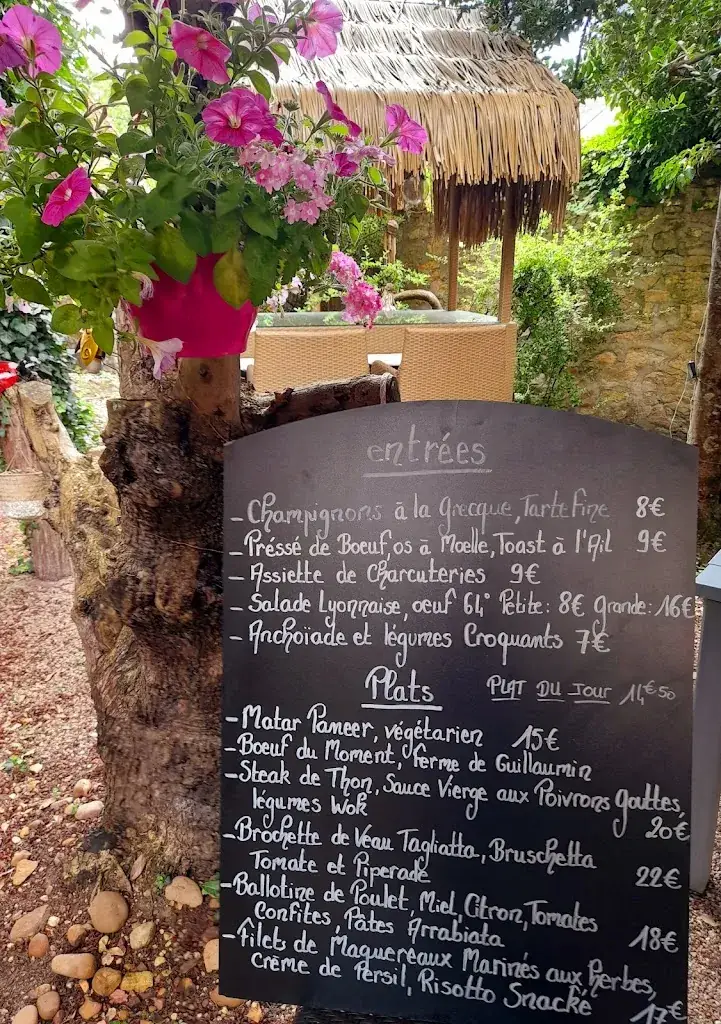 entrées
- Champignons à la Grecque, Tarte Fine 8€
- Préssé de Boeuf, os à Moelle, Toast à l'Ail 9€
- Assiette de Charcuteries 9€
- Salade Lyonnaise, oeuf 64° Petite: 8€ Grande: 16€
- Anchoïade et légumes Croquants 7€
Plats PLAT DU JOUR 14€50
- Matar Paneer, végétarien 15€
- Boeuf du Moment, Ferme de Guillaumin
- Steak de Thon, Sauce Vierge aux Poivrons gouttes,
légumes Wok 20€
- Brochette de Veau Tagliatta, Bruschetta
Tomate et Piperade 22€
- Ballotine de Poulet, Miel, Citron, Tomates
Confites, Pâtes Arrabiata 18€
- Filets de Maquereaux Marinés aux herbes,
Crème de Persil, Risotto Snacké 17€